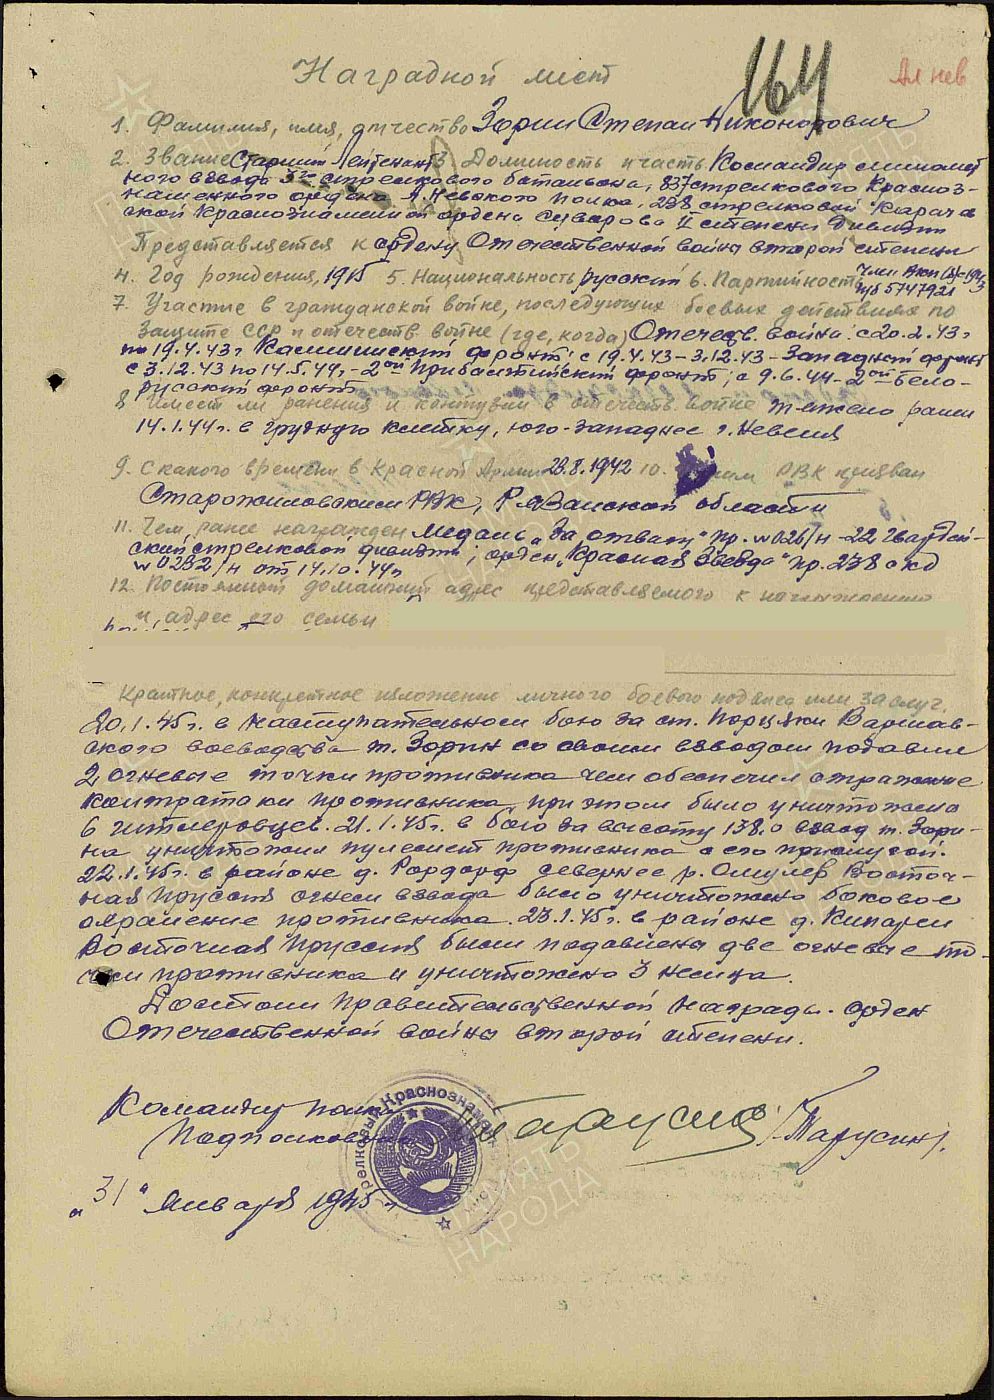 164
Ал нев
Наградной лист
1. Фамилия, имя, отчество Зорин Степан Никонорович
2. Звание Старший Лейтенант 3. Должность и часть Командир миномет
ного взвода 3го стрелкового батальона, 837 стрелкового Красноз-
наменного ордена А. Невского полка, 238 стрелковой Карачев
ской Краснознаменной ордена Суворова II степени дивизии
Представляется к ордену Отечественной война второй степени
4. Год рождения, 1915 5. Национальность русский 6. Партийность член ВКП(б)-1943
п/б 5747921
7. Участие в гражданской войне, последующих боевых действиях по
защите СССР и отечеств. войне (где, когда) Отечеств. война: с 20.2.43г
по 19.4.43г Калининский фронт; с 19.4.43-3.12.43-Западный фронт
с 3.12.43 по 14.5.44г-2ой Прибалтийский фронт; с 9.6.44-2ой Бело-
русский фронт
8 Имеет ли ранения и контузии в отечеств. войне тяжело ранен
14.1.44г. в грудную клетку, юго-западнее г. Невеля
9. С какого времени в Красной Армии 23.8.1942 10. Каким РВК призван
Старожиловским РВК, Рязанской области
11. Чем ранее награжден Медаль „За отвагу" пр. №026/н-22 Гвардей-
ский стрелковой дивизии; орден „Красная Звезда" пр. 238 с кд
№0232/н от 14.10.44г
12. Постоянный домашний адрес представляемого к награждению
и адрес его семьи
Краткое, конкретное изложение личного боевого подвига или заслуг.
20.1.45г. в наступательном бою за ст. Варшав-
ского воеводства т. Зорин со своим взводом подавил
2 огневые точки противника чем обеспечил отражение
контратаки противника, при этом было уничтожено
6 гитлеровцев. 21.1.45г. в бою за высоту 138.0 взвод т. Зори-
на уничтожил пулемет противника с его прислугой.
22.1.45г. в районе д. севернее р. Омулев Восточ-
ная Пруссия огнем взвода было уничтожено боковое
охранение противника. 23.1.45г. в районе д.
Восточная Пруссия были подавлены две огневые то-
чки противника и уничтожено 3 немца.
Достоин правительственной награды. орден
Отечественной война второй степени.
Командир полка
Подполковник /Тарусин/.
„31" января 1945 г
ПАМЯТЬ
НАРОДА